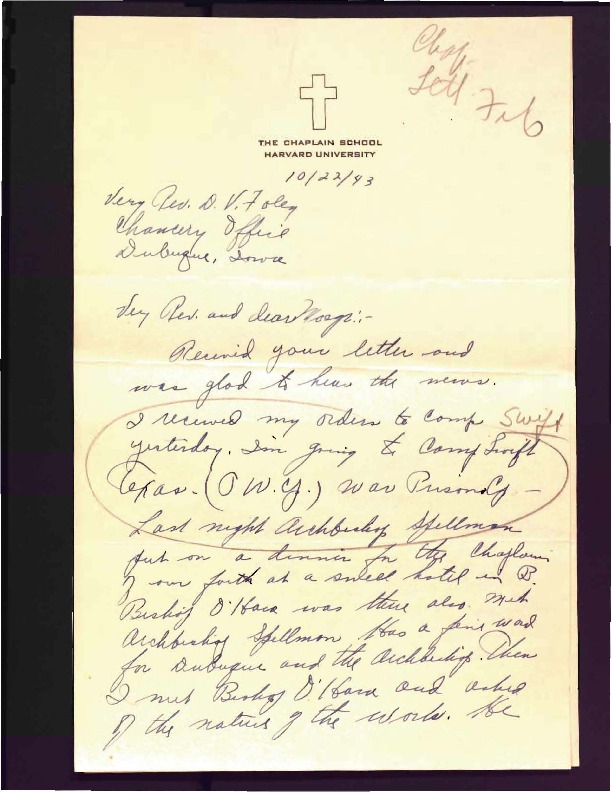 Chap.
Lett
Feb
THE CHAPLAIN SCHOOL
HARVARD UNIVERSITY
10/22/43
Very Rev. D. V. Foley
Chancery Office
Dubuque, Iowa
Very Rev. and dear Msgr:-
Received your letter and
was glad to hear the news.
I received my orders to Camp Swift
yesterday. I'm going to Camp Swift
Texas. (P.W.G.) War Prison
Last night Archbishop Spellman
put on a dinner for the Chaplains
of our faith at a swell hotel in B.
Bishop O'Hara was there also. Met
Archbishop Spellman. Has a fine word
for Dubuque and the Archbishop. Then
I met Bishop O'Hara and asked
of the nature of the work. He